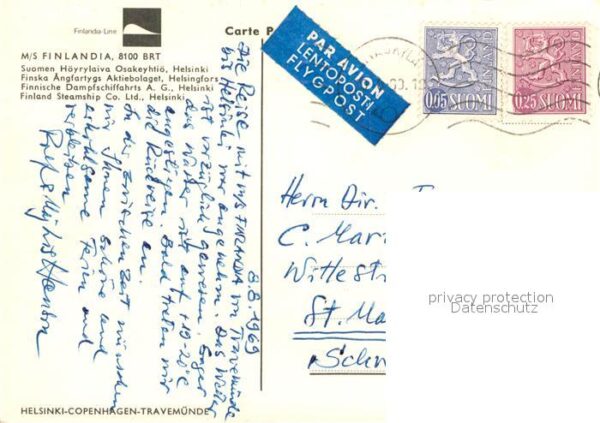 Finlandia-Line
Carte P
M/S FINLANDIA, 8100 BRT
Suomen Höyrylaiva Osakeyhtiö, Helsinki
Finska Ångfartygs Aktiebolaget, Helsingfors
Finnische Dampfschiffahrts A. G., Helsinki
Finland Steamship Co. Ltd., Helsinki
PAR AVION
LENTOPOSTI
FLYGPOST
0,05 SUOMI
FINLAND
0,25 SUOMI
FINLAND
8.8.1969
Die Reise mit M/S FINLANDIA von Travemünde
bis Helsinki war angenehm. Das Wetter
ist vorzüglich gewesen. Sogar
das Wasser ist auf +19-20°C
angestiegen. Bald treten wir
die Rückreise an.
In der Zwischenzeit wünschen
wir Ihnen schöne und
erholsame Ferien und
verbleiben
Herrn Dir.
C. Mari
Wittestr
St. Ma
Schw
privacy protection
Datenschutz
HELSINKI-COPENHAGEN-TRAVEMÜNDE